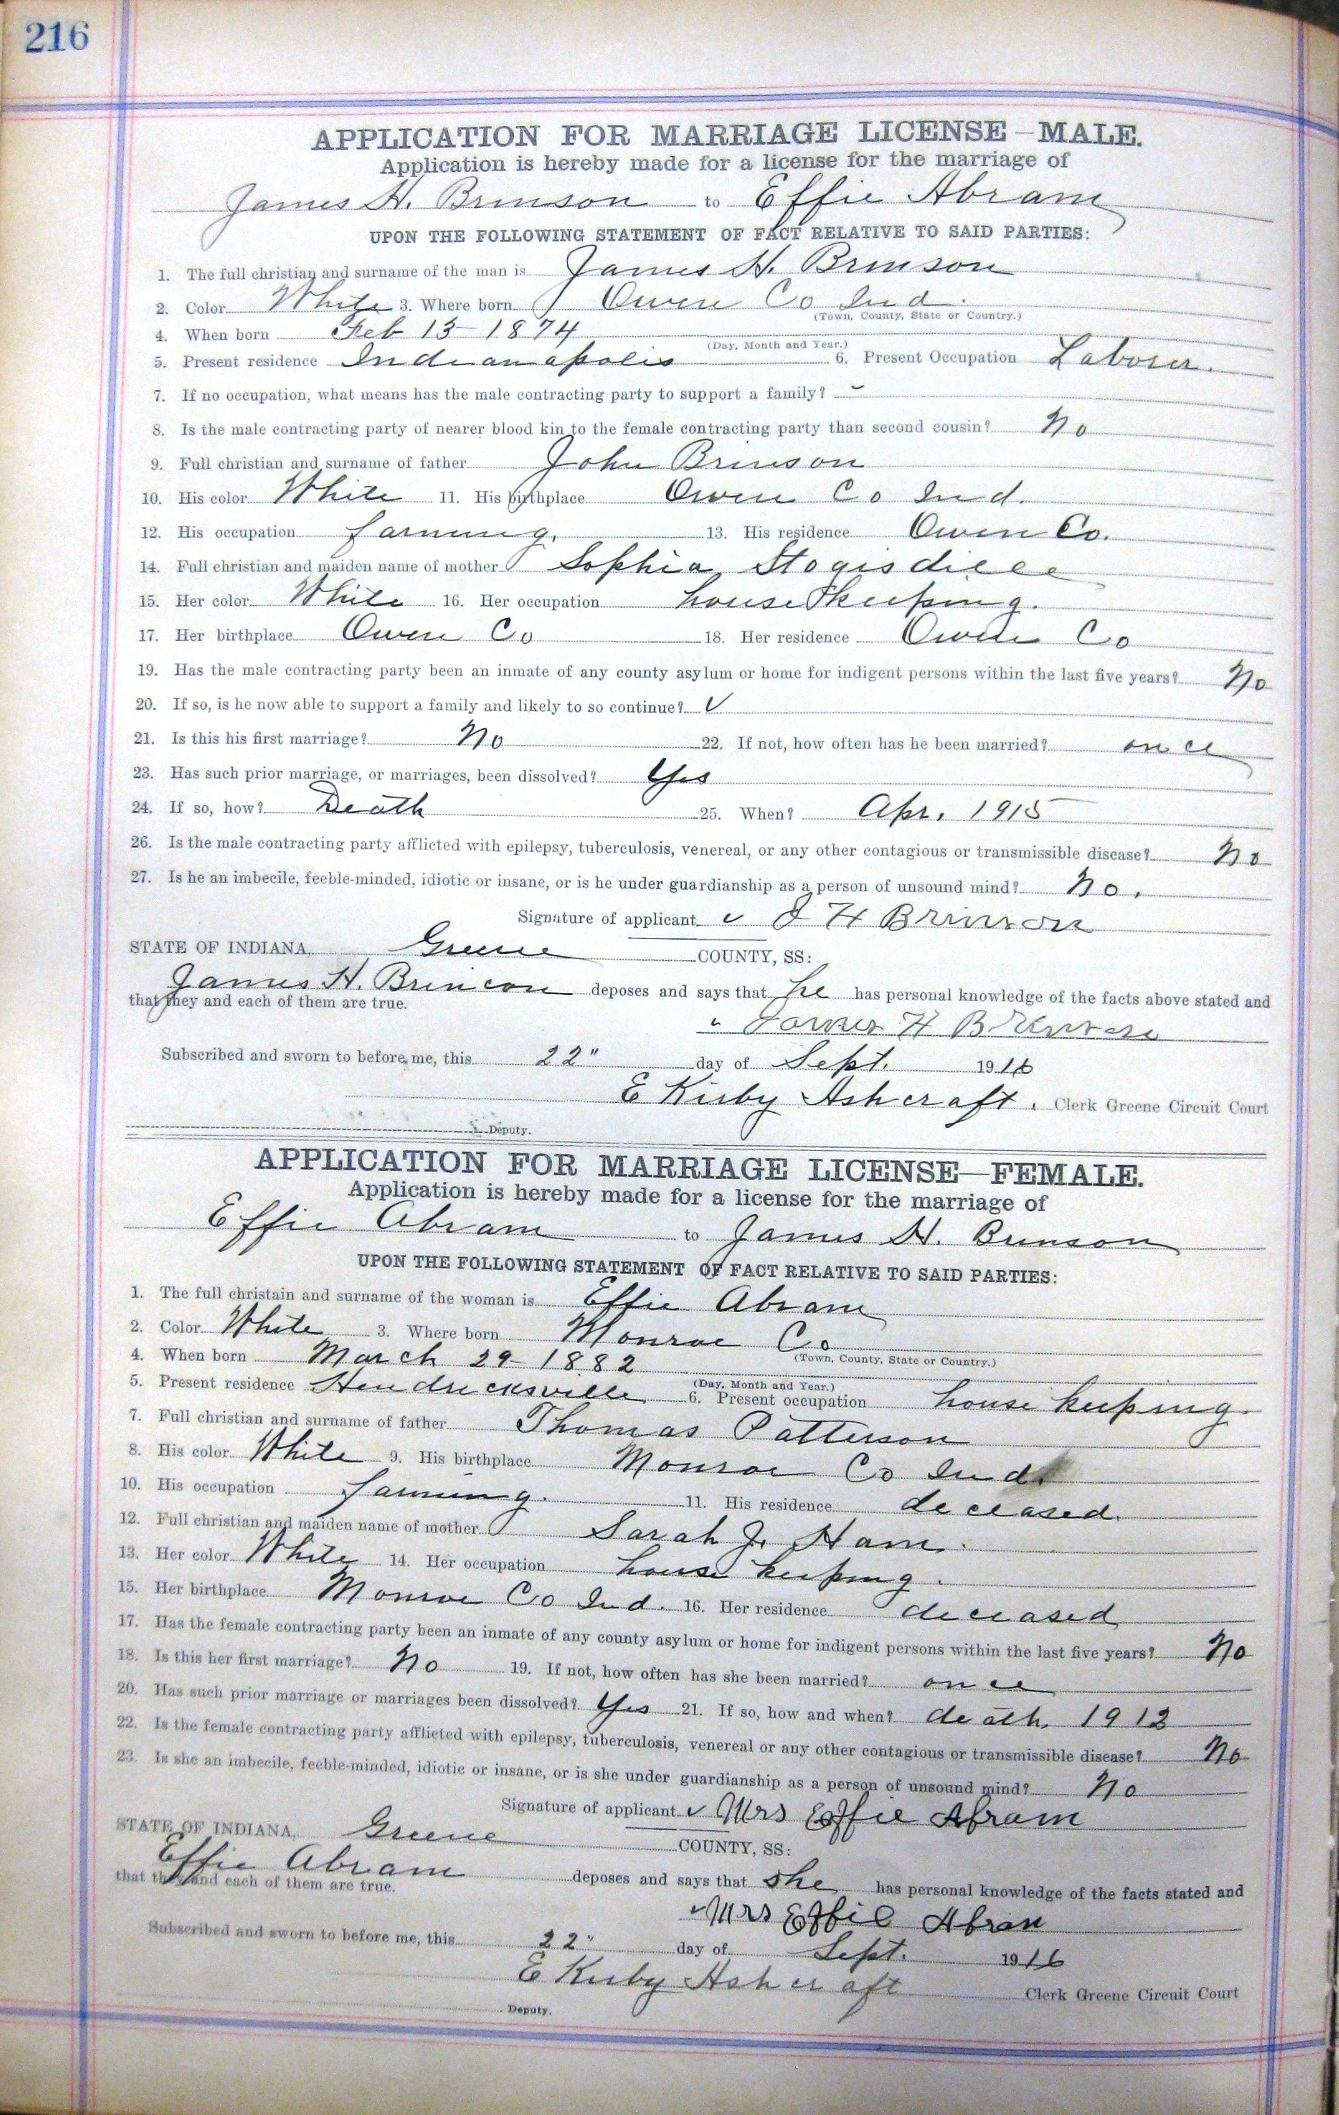 216
APPLICATION FOR MARRIAGE LICENSE—MALE.
Application is hereby made for a license for the marriage of
James H. Brinson to Effie Abram
UPON THE FOLLOWING STATEMENT OF FACT RELATIVE TO SAID PARTIES:
1. The full christian and surname of the man is James H. Brinson
2. Color White 3. Where born Owen Co Ind.
(Town, County, State or Country.)
4. When born Feb 13 - 1874
(Day, Month and Year.)
5. Present residence Indianapolis 6. Present Occupation Laborer.
7. If no occupation, what means has the male contracting party to support a family? -
8. Is the male contracting party of nearer blood kin to the female contracting party than second cousin? No
9. Full christian and surname of father John Brinson
10. His color White 11. His birthplace Owen Co Ind.
12. His occupation farming. 13. His residence Owen Co.
14. Full christian and maiden name of mother Sophia Stogisdill
15. Her color White 16. Her occupation house keeping.
17. Her birthplace Owen Co 18. Her residence Owen Co
19. Has the male contracting party been an inmate of any county asylum or home for indigent persons within the last five years? No
20. If so, is he now able to support a family and likely to so continue? ✓
21. Is this his first marriage? No 22. If not, how often has he been married? once
23. Has such prior marriage, or marriages, been dissolved? Yes
24. If so, how? Death 25. When? Apr. 1915
26. Is the male contracting party afflicted with epilepsy, tuberculosis, venereal, or any other contagious or transmissible disease? No
27. Is he an imbecile, feeble-minded, idiotic or insane, or is he under guardianship as a person of unsound mind? No.
Signature of applicant ✓ J H Brinson
STATE OF INDIANA, Greene COUNTY, SS:
James H. Brincon deposes and says that he has personal knowledge of the facts above stated and
that they and each of them are true.
✓ James H Brinson
Subscribed and sworn to before me, this 22" day of Sept. 1916
E Kirby Ashcraft, Clerk Greene Circuit Court
Deputy.
APPLICATION FOR MARRIAGE LICENSE—FEMALE.
Application is hereby made for a license for the marriage of
Effie Abram to James H. Brinson
UPON THE FOLLOWING STATEMENT OF FACT RELATIVE TO SAID PARTIES:
1. The full christain and surname of the woman is Effie Abram
2. Color White 3. Where born Monroe Co
(Town, County, State or Country.)
4. When born March 29 - 1882
(Day, Month and Year.)
5. Present residence Hendricksville 6. Present occupation house keeping.
7. Full christian and surname of father Thomas Patterson
8. His color White 9. His birthplace Monroe Co Ind.
10. His occupation farming. 11. His residence deceased.
12. Full christian and maiden name of mother Sarah J. Ham.
13. Her color White 14. Her occupation house keeping.
15. Her birthplace Monroe Co Ind. 16. Her residence deceased
17. Has the female contracting party been an inmate of any county asylum or home for indigent persons within the last five years? No
18. Is this her first marriage? No 19. If not, how often has she been married? once
20. Has such prior marriage or marriages been dissolved? Yes 21. If so, how and when? death. 1912
22. Is the female contracting party afflicted with epilepsy, tuberculosis, venereal or any other contagious or transmissible disease? No
23. Is she an imbecile, feeble-minded, idiotic or insane, or is she under guardianship as a person of unsound mind? No
Signature of applicant ✓ Mrs Effie Abram
STATE OF INDIANA, Greene COUNTY, SS:
Effie Abram deposes and says that she has personal knowledge of the facts stated and
that they and each of them are true.
✓ Mrs Effie Abram
Subscribed and sworn to before me, this 22" day of Sept. 1916
E Kirby Ashcraft Clerk Greene Circuit Court
Deputy.